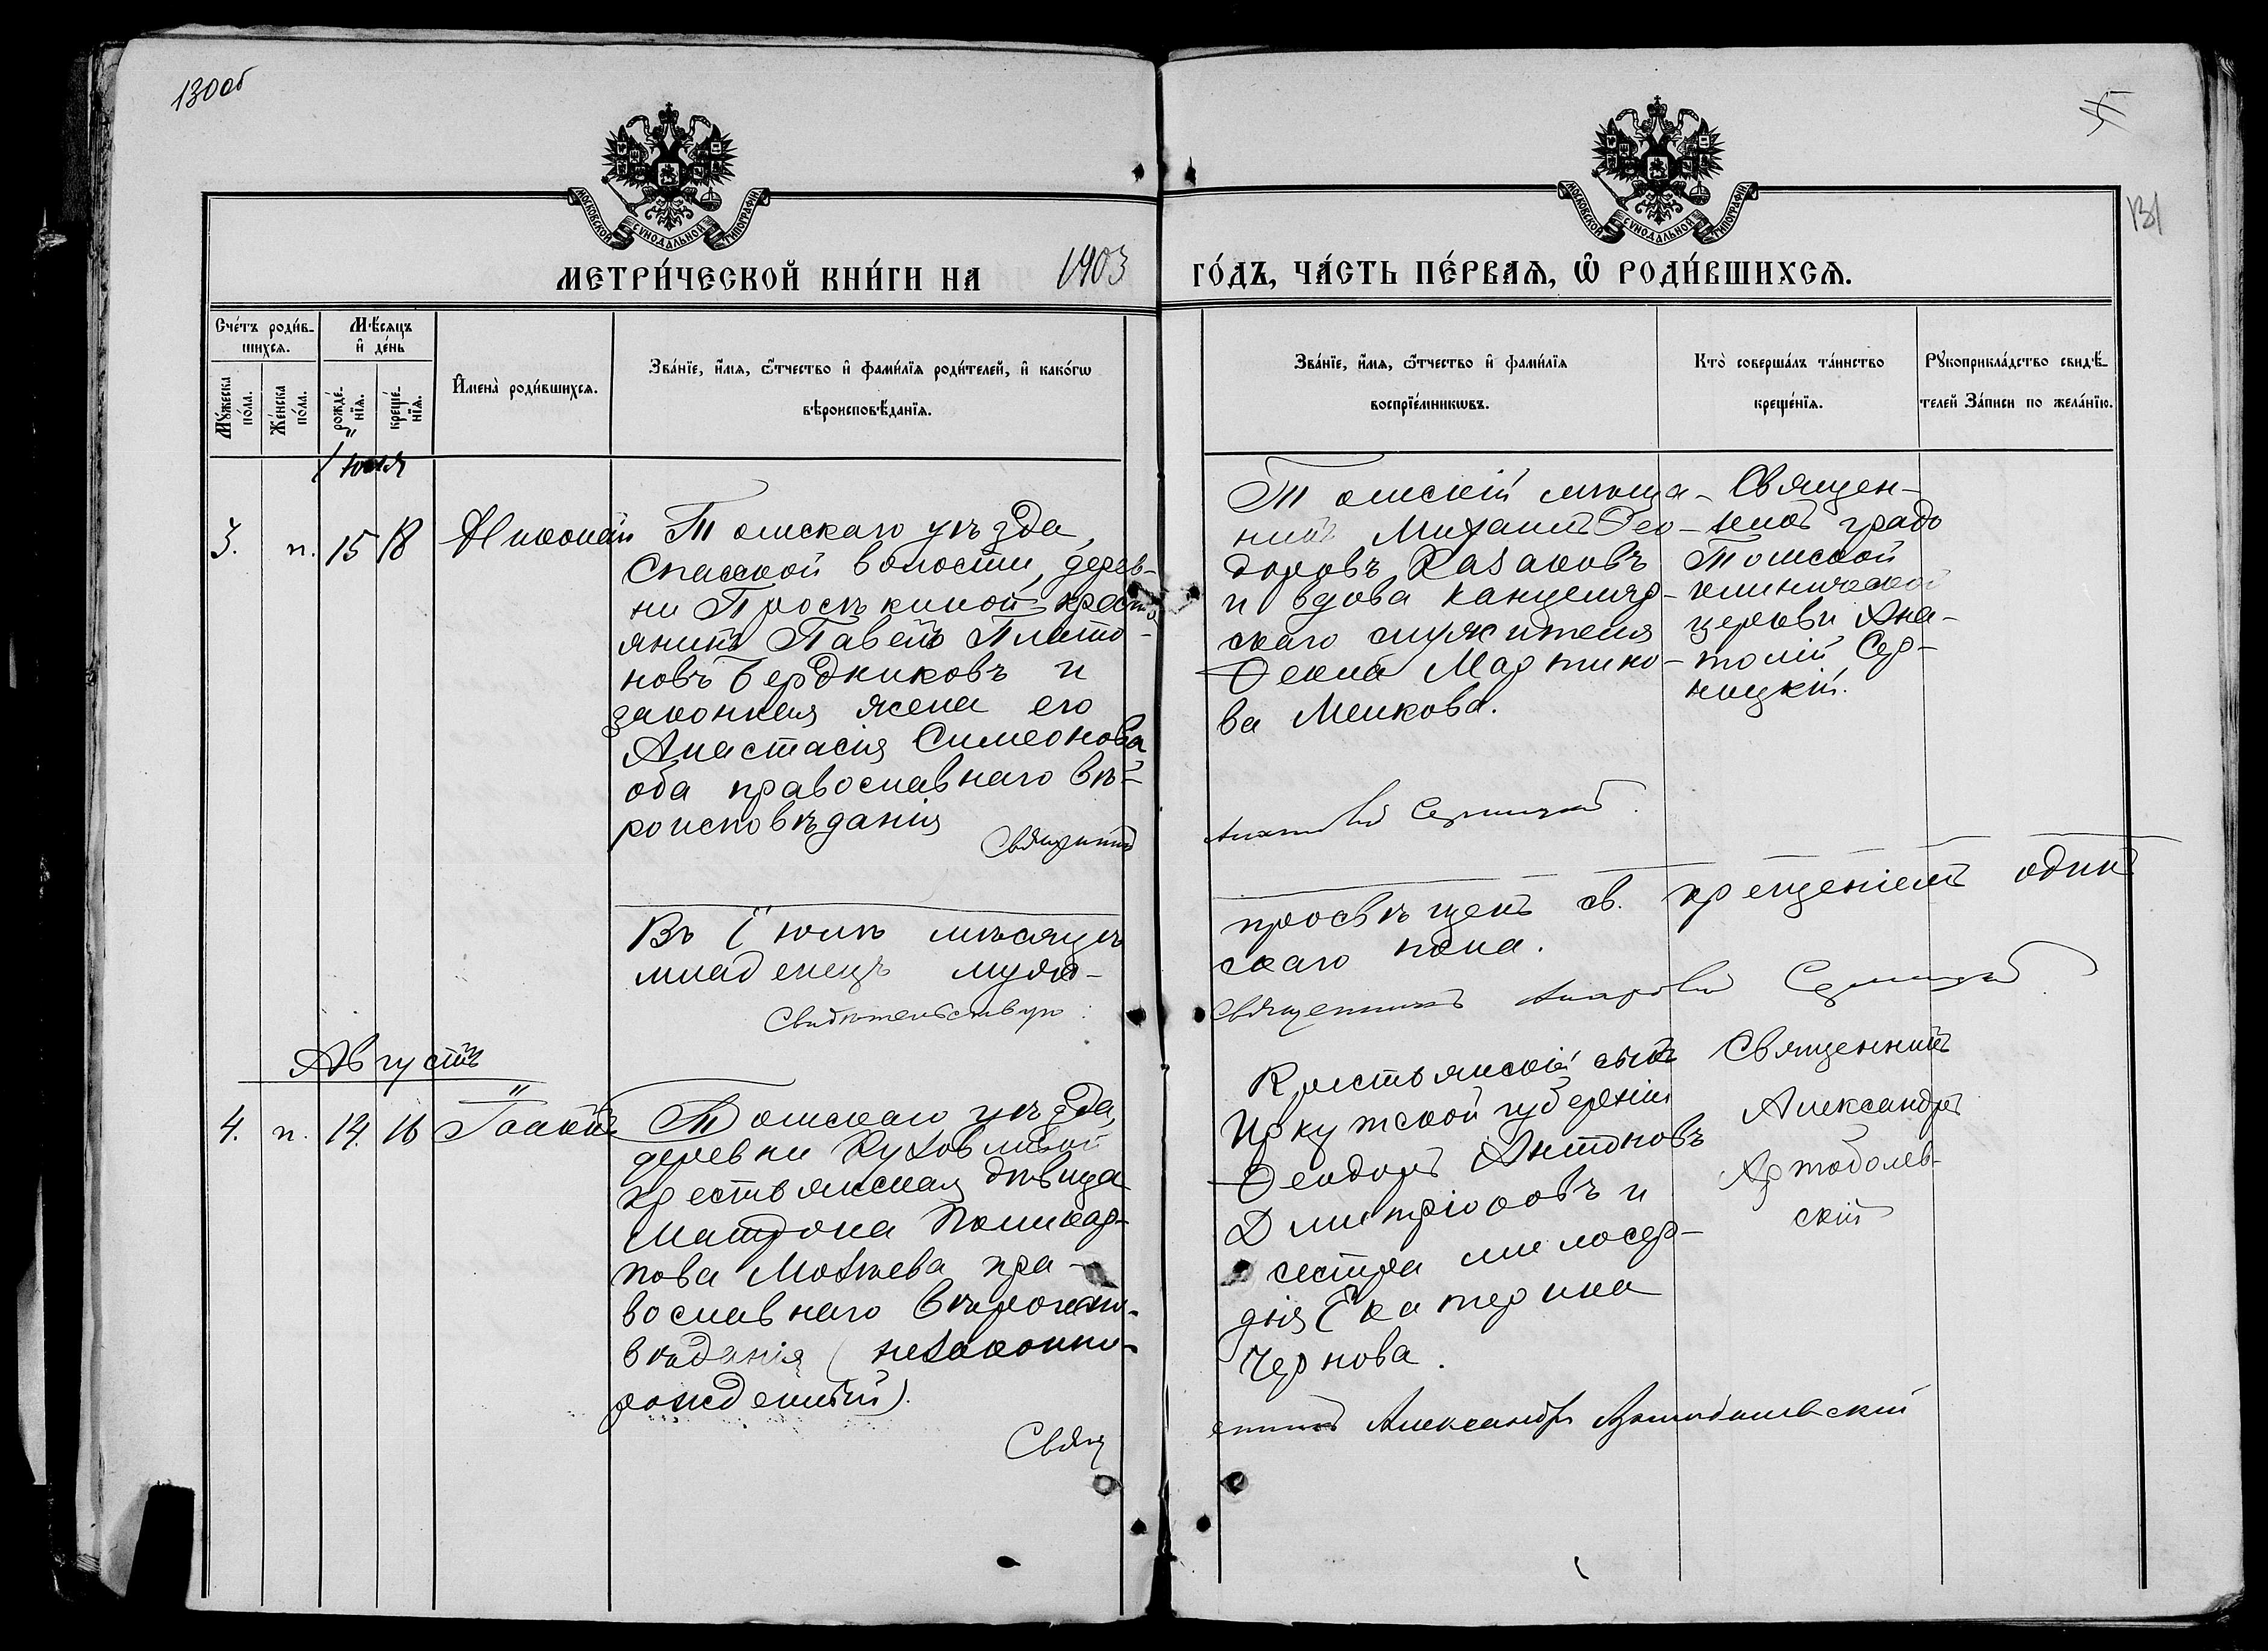 130об
5
131
МОСКОВСКОЙ СѴНОДАЛЬНОЙ ТИПОГРАФІИ
МОСКОВСКОЙ СѴНОДАЛЬНОЙ ТИПОГРАФІИ
МЕТРИ́ЧЕСКОЙ КНИ́ГИ НА 1903 ГО́ДЪ, ЧА́СТЬ ПЕ́РВАѦ, Ѡ РОДИ́ВШИХСѦ.
Сче́тъ роди́в-
шихсѧ.
Мꙋ́жеска
по́ла.
Же́нска
по́ла.
Мѣ́сѧцъ
и҆ де́нь
рожде́-
нїѧ.
креще́-
нїѧ.
И҆мена̀ роди́вшихсѧ.
Зва́нїе, и҆́мѧ, ѻ҆́тчество и҆ фами́лїѧ роди́телей, и҆ како́гѡ
вѣроисповѣ́данїѧ.
Зва́нїе, и҆́мѧ, ѻ҆́тчество и҆ фами́лїѧ
воспрїе́мникѡвъ.
Кто̀ соверша́лъ та́инство
креще́нїѧ.
Рꙋкоприкла́дство свидѣ́-
телей За́писи по жела́нїю.
Іюля
3. п. 15 18 Николай
Томскаго уѣзда,
Спасской волости, дерев-
ни Проскѣкиной кресть
янинъ Павелъ Плато-
новъ Бердниковъ и
законная жена его
Анастасія Симеонова
оба православнаго вѣ-
роисповѣданія
Священникъ
Томскій мѣща-
нинъ Михаилъ Ѳео-
доровъ Казаковъ
и вдова канцеляр-
скаго служителя
Ѳекла Мартино-
ва Меикова.
Священ-
никъ градо
Томской
клинической
церкви Ана-
толій Сер-
ницкій.
Въ Іюлѣ мѣсяцѣ
младенецъ муже-
просвѣщенъ св. крещеніемъ одинъ
скаго пола.
Свидѣтельствую:
Священникъ
Августъ
4. п. 14. 16 Іоакимъ
Томскаго уѣзда,
деревни
крестьянская дѣвица
Матрона Поликар-
пова Мохнева пра-
вославнаго вѣроиспо-
вѣданія (незаконно-
рожденный).
Свящ
Крестьянскій сынъ
Иркутской губерніи
Ѳеодоръ Антоновъ
и
сестра милосер-
дія Екатерина
Чернова.
Священникъ
Александръ
Артоболев-
скій
енникъ Александръ Артоболевскій